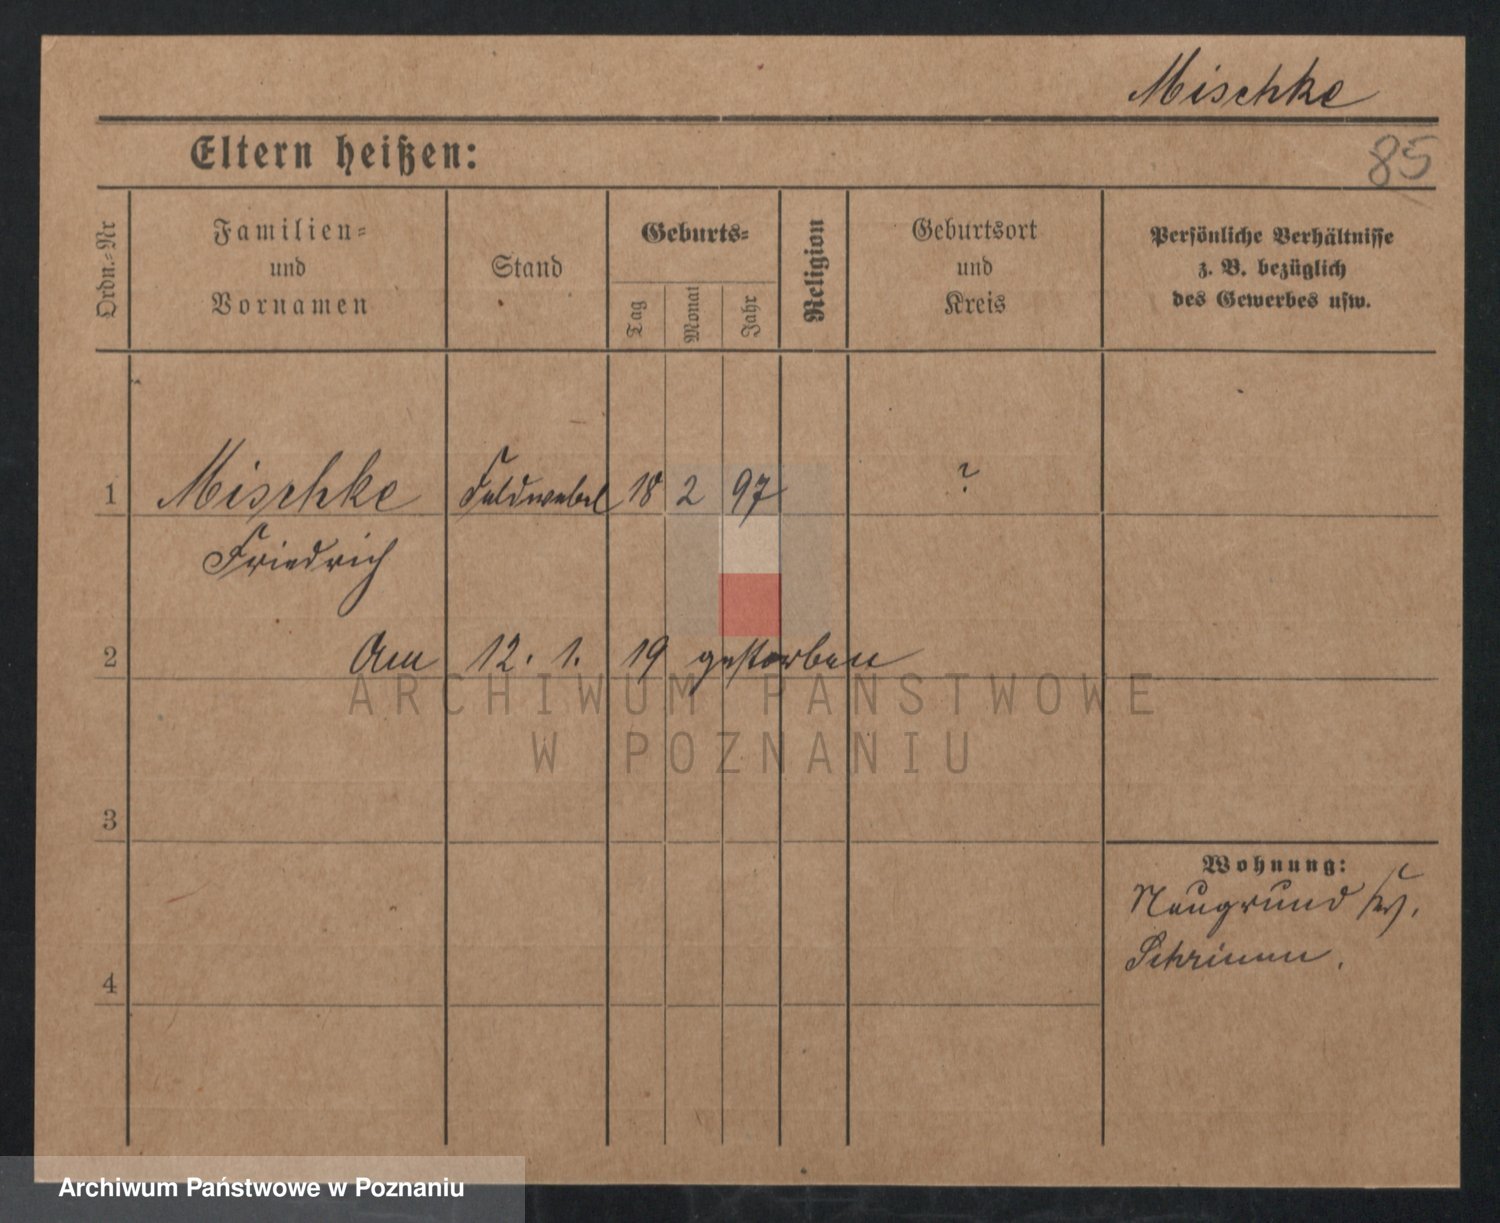 Mischke
Eltern heißen:
85
Ordn.-Nr
Familien-
und
Vornamen
Stand
Geburts-
Tag
Monat
Jahr
Religion
Geburtsort
und
Kreis
Persönliche Verhältnisse
z. B. bezüglich
des Gewerbes usw.
1 Mischke Feldwebel 18 2 97 ?
Friedrich
2 Am 12. 1. 19 gestorben
ARCHIWUM PAŃSTWOWE
W POZNANIU
3
Wohnung:
Neugrund
Schrimm.
4
Archiwum Państwowe w Poznaniu